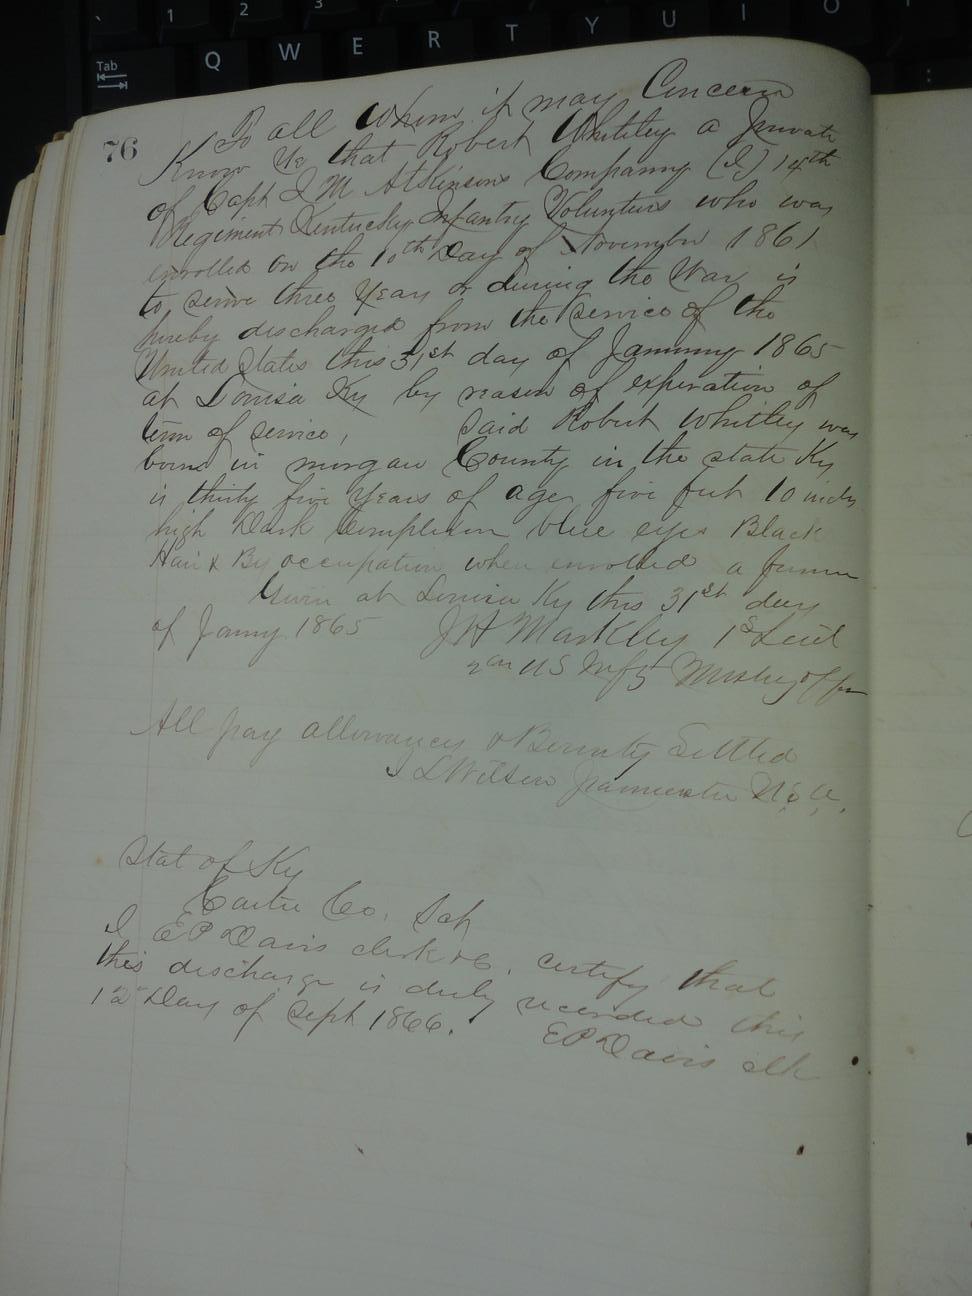 1 2 3
Tab Q W E R T Y U I O
76
To all Whom it may Concern
Know Ye that Robert Whitley a private
of Capt I M Atkinsons Company (I) 14th
Regiment Kentucky Infantry Volunters who was
enrolled on the 10th Day of November 1861
to serve three Years or during the War is
hereby discharged from the Service of the
United States this 31st day of January 1865
at Louisa Ky by reason of expiration of
term of service, Said Robert Whitley was
born in morgan County in the state Ky
is thirty five Years of age five feet 10 inches
high Dark Complexion blue eyes Black
Hair & By occupation when enrolled a farmer
Given at Louisa Ky this 31st day
of Jany 1865 J H Markley 1st Lieut
US Infy Mustg offr
All pay allowances & Bounty Settled
J L Wilson Paymaster U.S.A.
Stat of Ky
Carter Co. Sct
I E P Davis clerk &c. certify that
this discharge is duly recorded this
12 Day of Sept 1866.
E P Davis clk